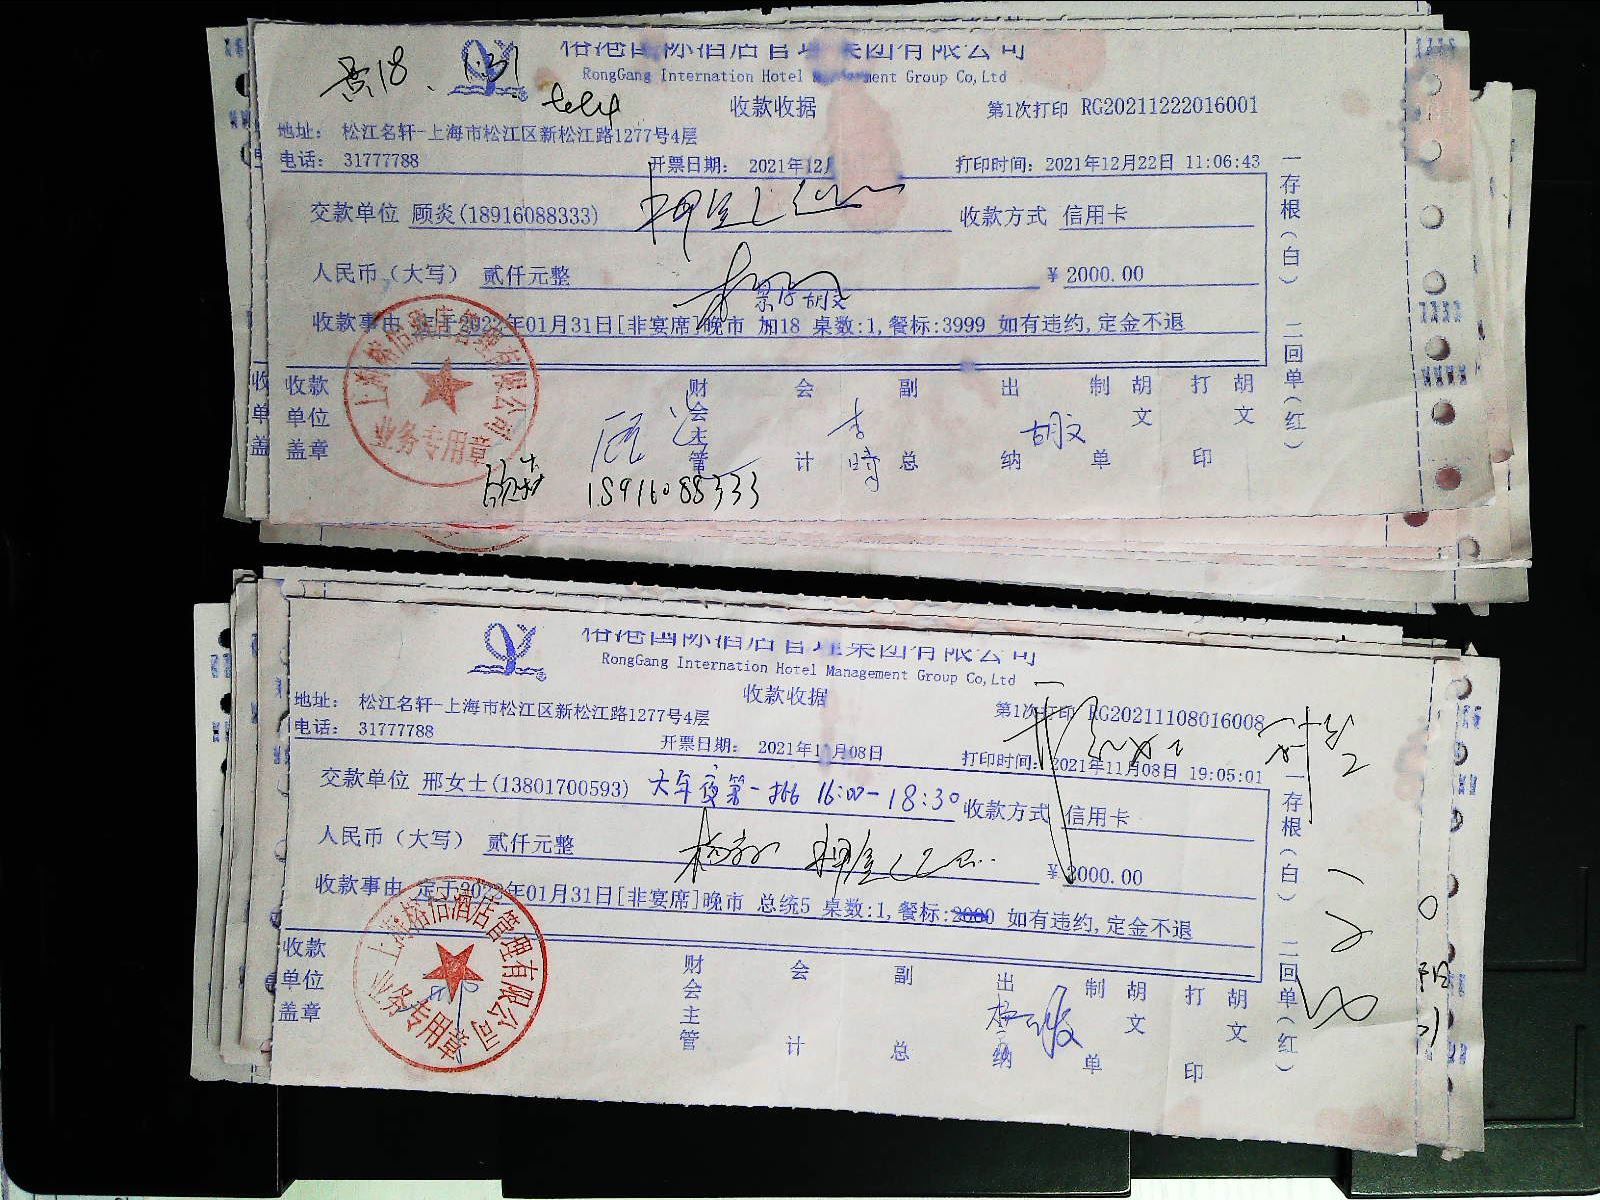 榕港国际酒店管理集团有限公司
RongGang Internation Hotel Management Group Co,Ltd
收款收据 第1次打印 RG20211222016001
地址: 松江名轩-上海市松江区新松江路1277号4层
电话: 31777788 开票日期: 2021年12月 打印时间: 2021年12月22日 11:06:43
交款单位 顾炎(18916088333) 收款方式 信用卡
人民币(大写) 贰仟元整 ¥2000.00
景18 胡文
收款事由 定于2022年01月31日[非宴席]晚市 加18 桌数:1,餐标:3999 如有违约,定金不退
收款单位盖章 财会主管 会计 副总 出纳 胡文 制单 胡文 打印 胡文
18916088333
一存根(白) 二回单(红)
上海榕倍酒店管理有限公司
业务专用章
榕港国际酒店管理集团有限公司
RongGang Internation Hotel Management Group Co,Ltd
收款收据 第1次打印 RG20211108016008
地址: 松江名轩-上海市松江区新松江路1277号4层
电话: 31777788 开票日期: 2021年11月08日 打印时间: 2021年11月08日 19:05:01
交款单位 邢女士(13801700593) 大年夜第一批 16:00-18:30 收款方式 信用卡
人民币(大写) 贰仟元整 ¥2000.00
收款事由 定于2022年01月31日[非宴席]晚市 总统5 桌数:1,餐标: 如有违约,定金不退
收款单位盖章 财会主管 会计 副总 出纳 制单 胡文 打印 胡文
一存根(白) 二回单(红)
上海榕倍酒店管理有限公司
业务专用章